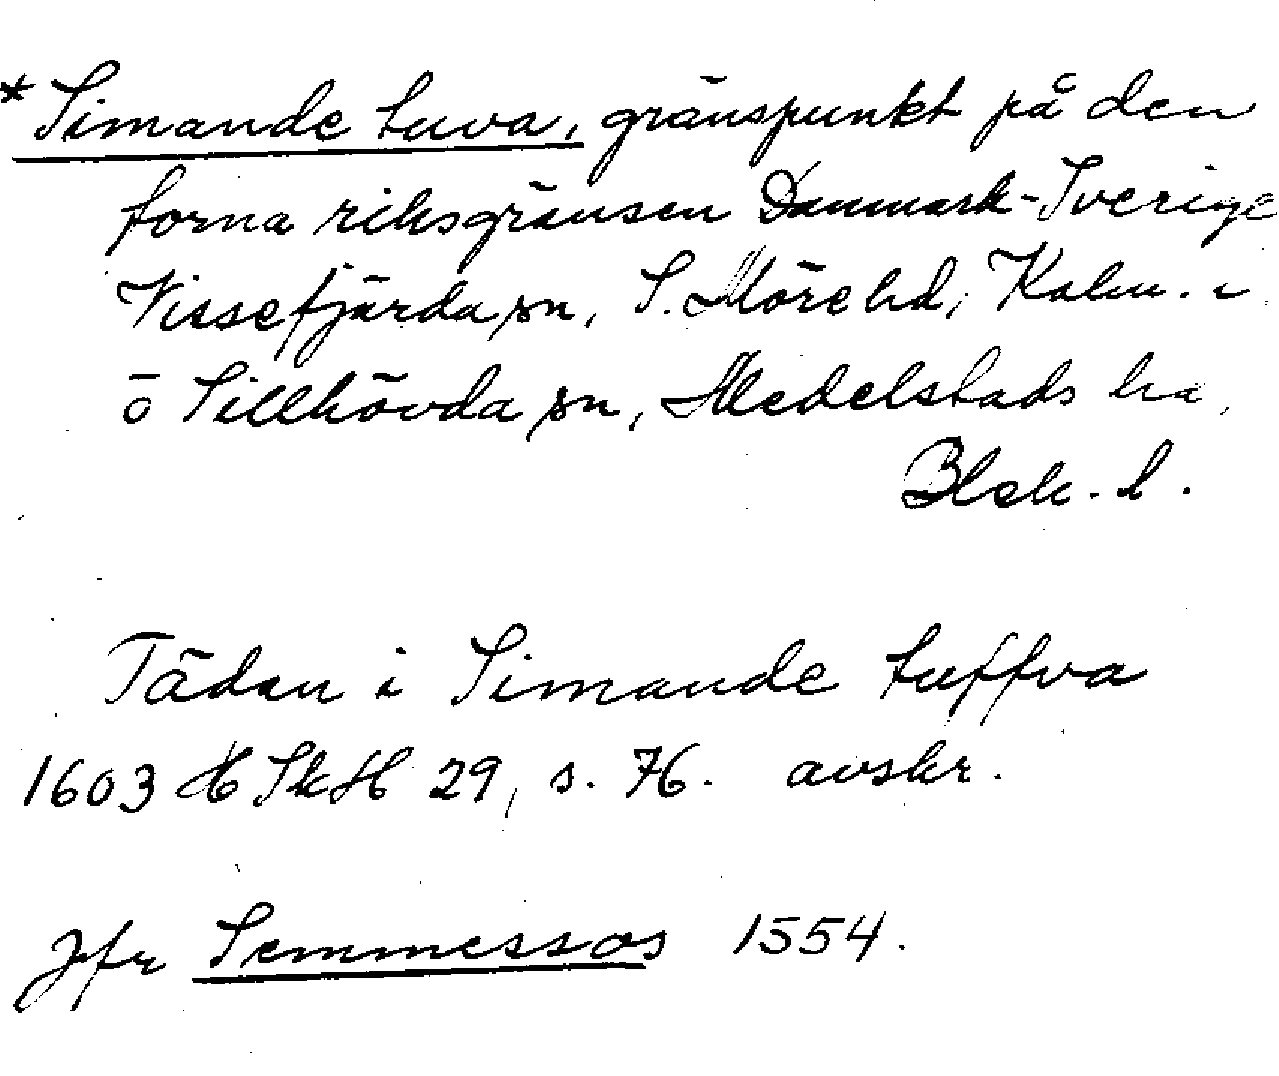 * Simande tuva, gränspunkt på den
forna riksgränsen Danmark-Sverige
Vissefjärda sn, S. Möre hd, Kalm. l
o Sillhövda sn, Medelstads hd,
Blek. l.
Tädan i Simande tuffva
1603 HSkH 29, s. 76. avskr.
Jfr Semmessos 1554.